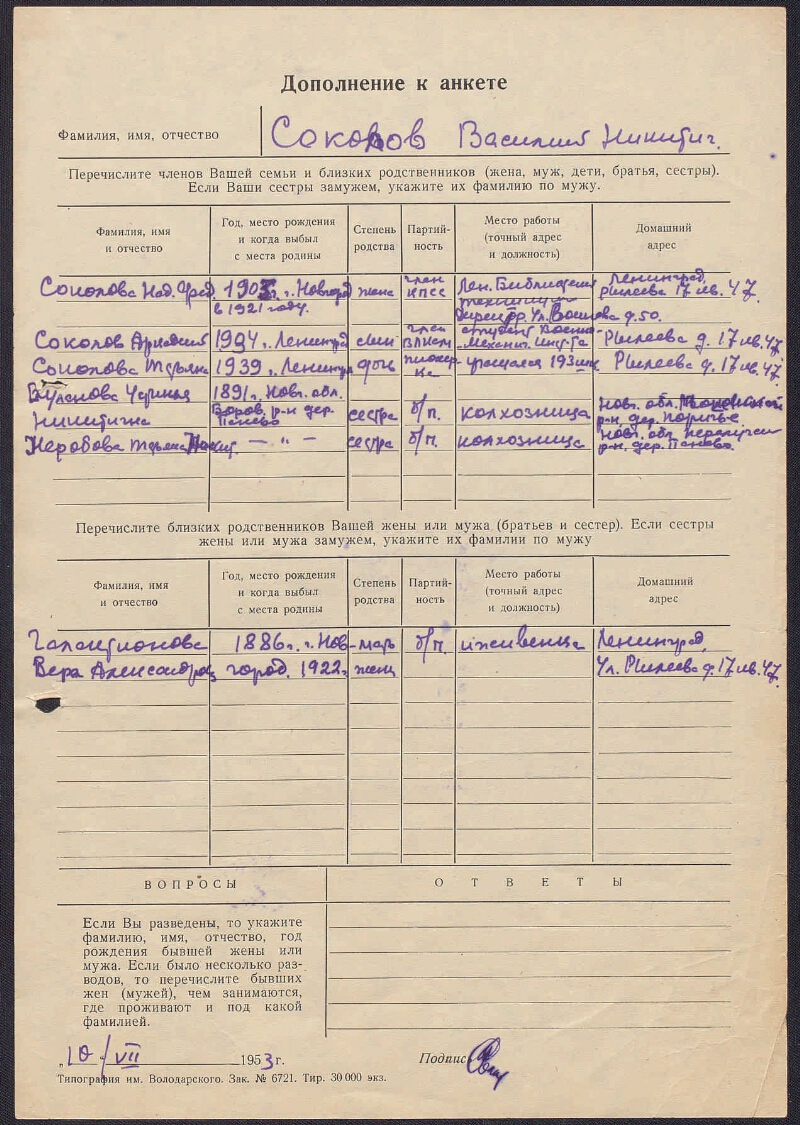 Дополнение к анкете
Фамилия, имя, отчество Соколов Василий Никитич.
Перечислите членов Вашей семьи и близких родственников (жена, муж, дети, братья, сестры).
Если Ваши сестры замужем, укажите их фамилию по мужу.
Фамилия, имя и отчество
Год, место рождения и когда выбыл с места родины
Степень родства
Партий- ность
Место работы (точный адрес и должность)
Домашний адрес
Соколова Над. Фед. 190 г. г. Новгород в 1921 году. жена член КПСС Лен. Библиотечн техникум директор. Ул. д. 50. Ленинград, Рылеева 17 кв. 47
Соколов Аркадий 1924 г. Ленинград сын член ВЛКСМ студент Механич. Инс-та Рылеева д. 17 кв. 47
Соколова Татьяна 1939 г. Ленинград дочь пионер- ка учащаяся 193 шк Рылеева д. 17 кв. 47
Никитична 1891 г. Новг. обл. р-н дер. Панево сестра б/п. колхозница Новг. обл. р-н. дер.
Татьяна Никит. — „ — сестра б/п. колхозница Новг. обл. р-н. дер. Панево.
Перечислите близких родственников Вашей жены или мужа (братьев и сестер). Если сестры
жены или мужа замужем, укажите их фамилии по мужу
Фамилия, имя и отчество
Год, место рождения и когда выбыл с места родины
Степень родства
Партий- ность
Место работы (точный адрес и должность)
Домашний адрес
Галактионова 1886 г. г. Нов- мать б/п. иждивенца Ленинград,
Вера Александров город. 1922 г. жены Ул. Рылеева д. 17 кв. 47
ВОПРОСЫ
ОТВЕТЫ
Если Вы разведены, то укажите
фамилию, имя, отчество, год
рождения бывшей жены или
мужа. Если было несколько раз-
водов, то перечислите бывших
жен (мужей), чем занимаются,
где проживают и под какой
фамилией.
„10/VII 1953 г. Подпись
Типография им. Володарского. Зак. № 6721. Тир. 30 000 экз.